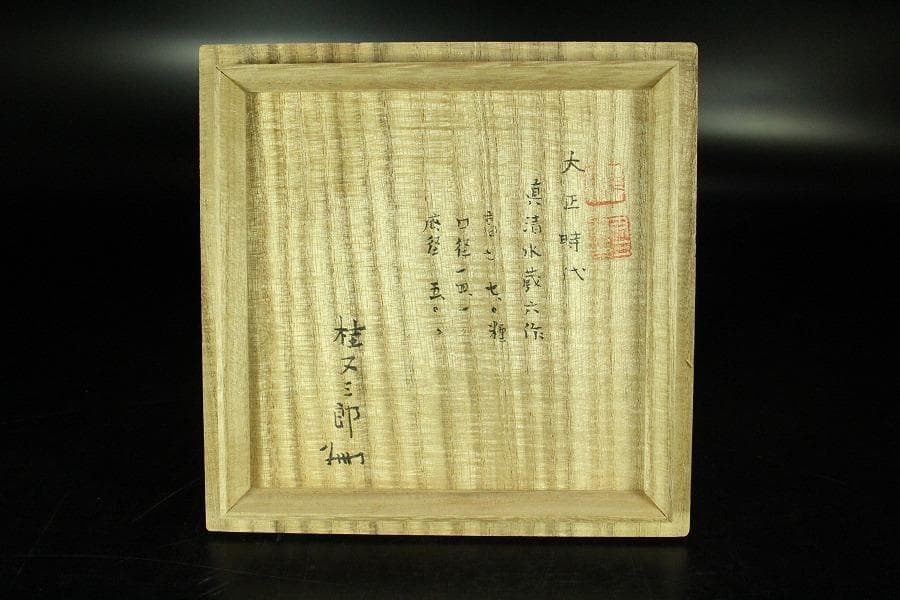 大正時代
真清水蔵六作
高さ 七.〇糎
口径 一五.一〃
底径 五.〇〃
桂又三郎